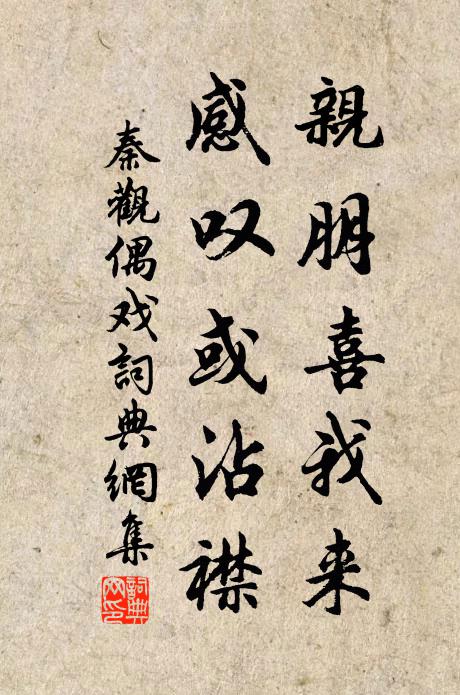 親朋喜我来
感叹或沾襟
秦觀偶戏詞典網集
詞典网印